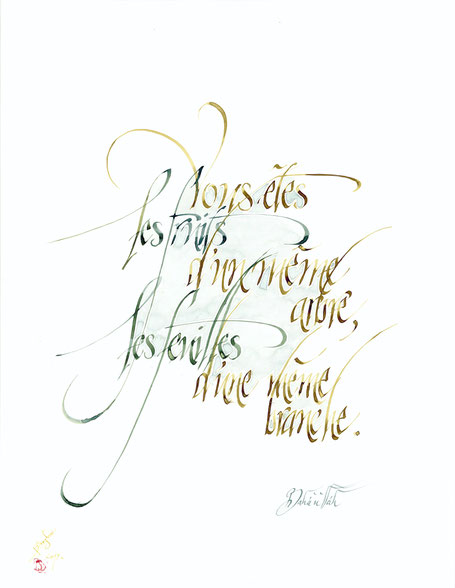 Vous êtes
les fruits
d'un même
arbre,
les feuilles
d'une même
branche.
Bahá'u'lláh